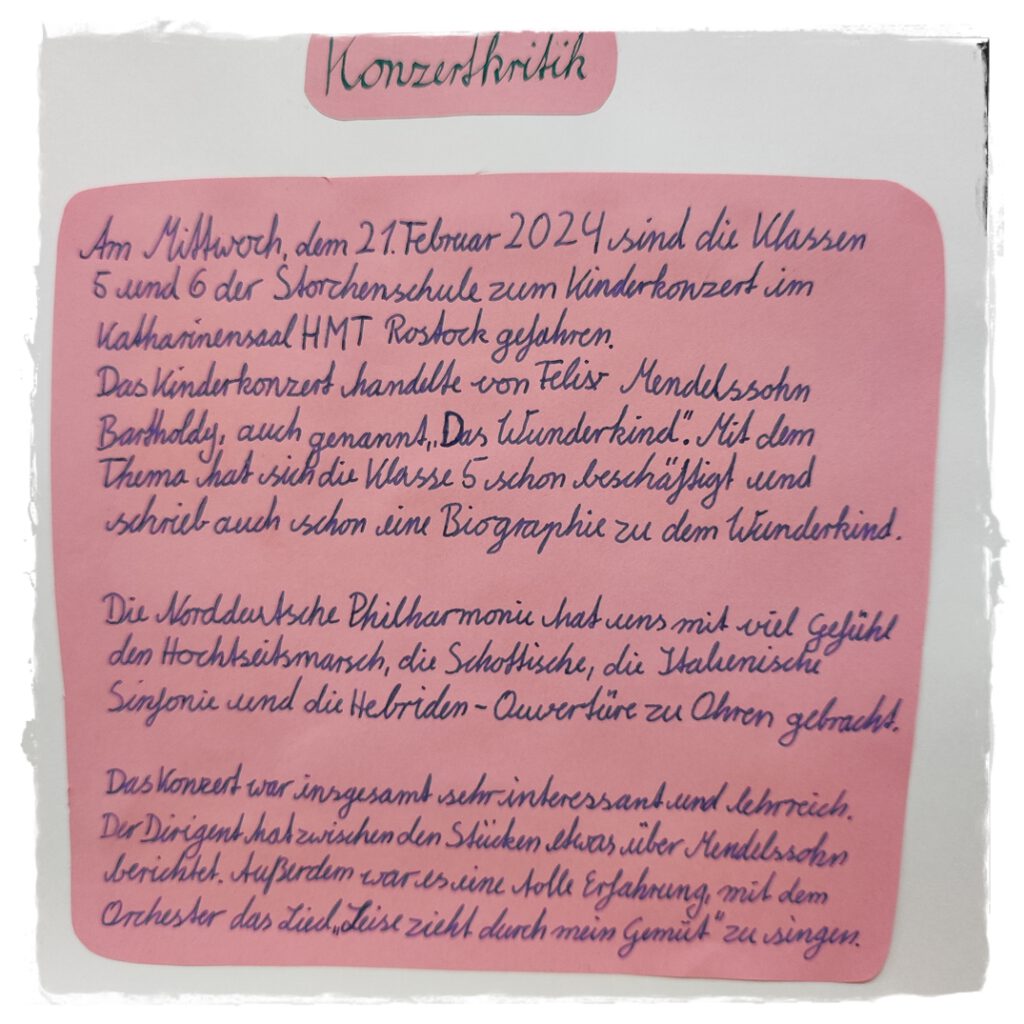 Konzertkritik
Am Mittwoch, dem 21. Februar 2024 sind die Klassen
5 und 6 der Storchenschule zum Kinderkonzert im
Katharinensaal HMT Rostock gefahren.
Das Kinderkonzert handelte von Felix Mendelssohn
Bartholdy, auch genannt „Das Wunderkind". Mit dem
Thema hat sich die Klasse 5 schon beschäftigt und
schrieb auch schon eine Biographie zu dem Wunderkind.
Die Norddeutsche Philharmonie hat uns mit viel Gefühl
den Hochtseitsmarsch, die Schottische, die Italienische
Sinfonie und die Hebriden-Ouvertüre zu Ohren gebracht.
Das Konzert war insgesamt sehr interessant und lehrreich.
Der Dirigent hat zwischen den Stücken etwas über Mendelssohn
berichtet. Außerdem war es eine tolle Erfahrung, mit dem
Orchester das Lied „Leise zieht durch mein Gemüt" zu singen.